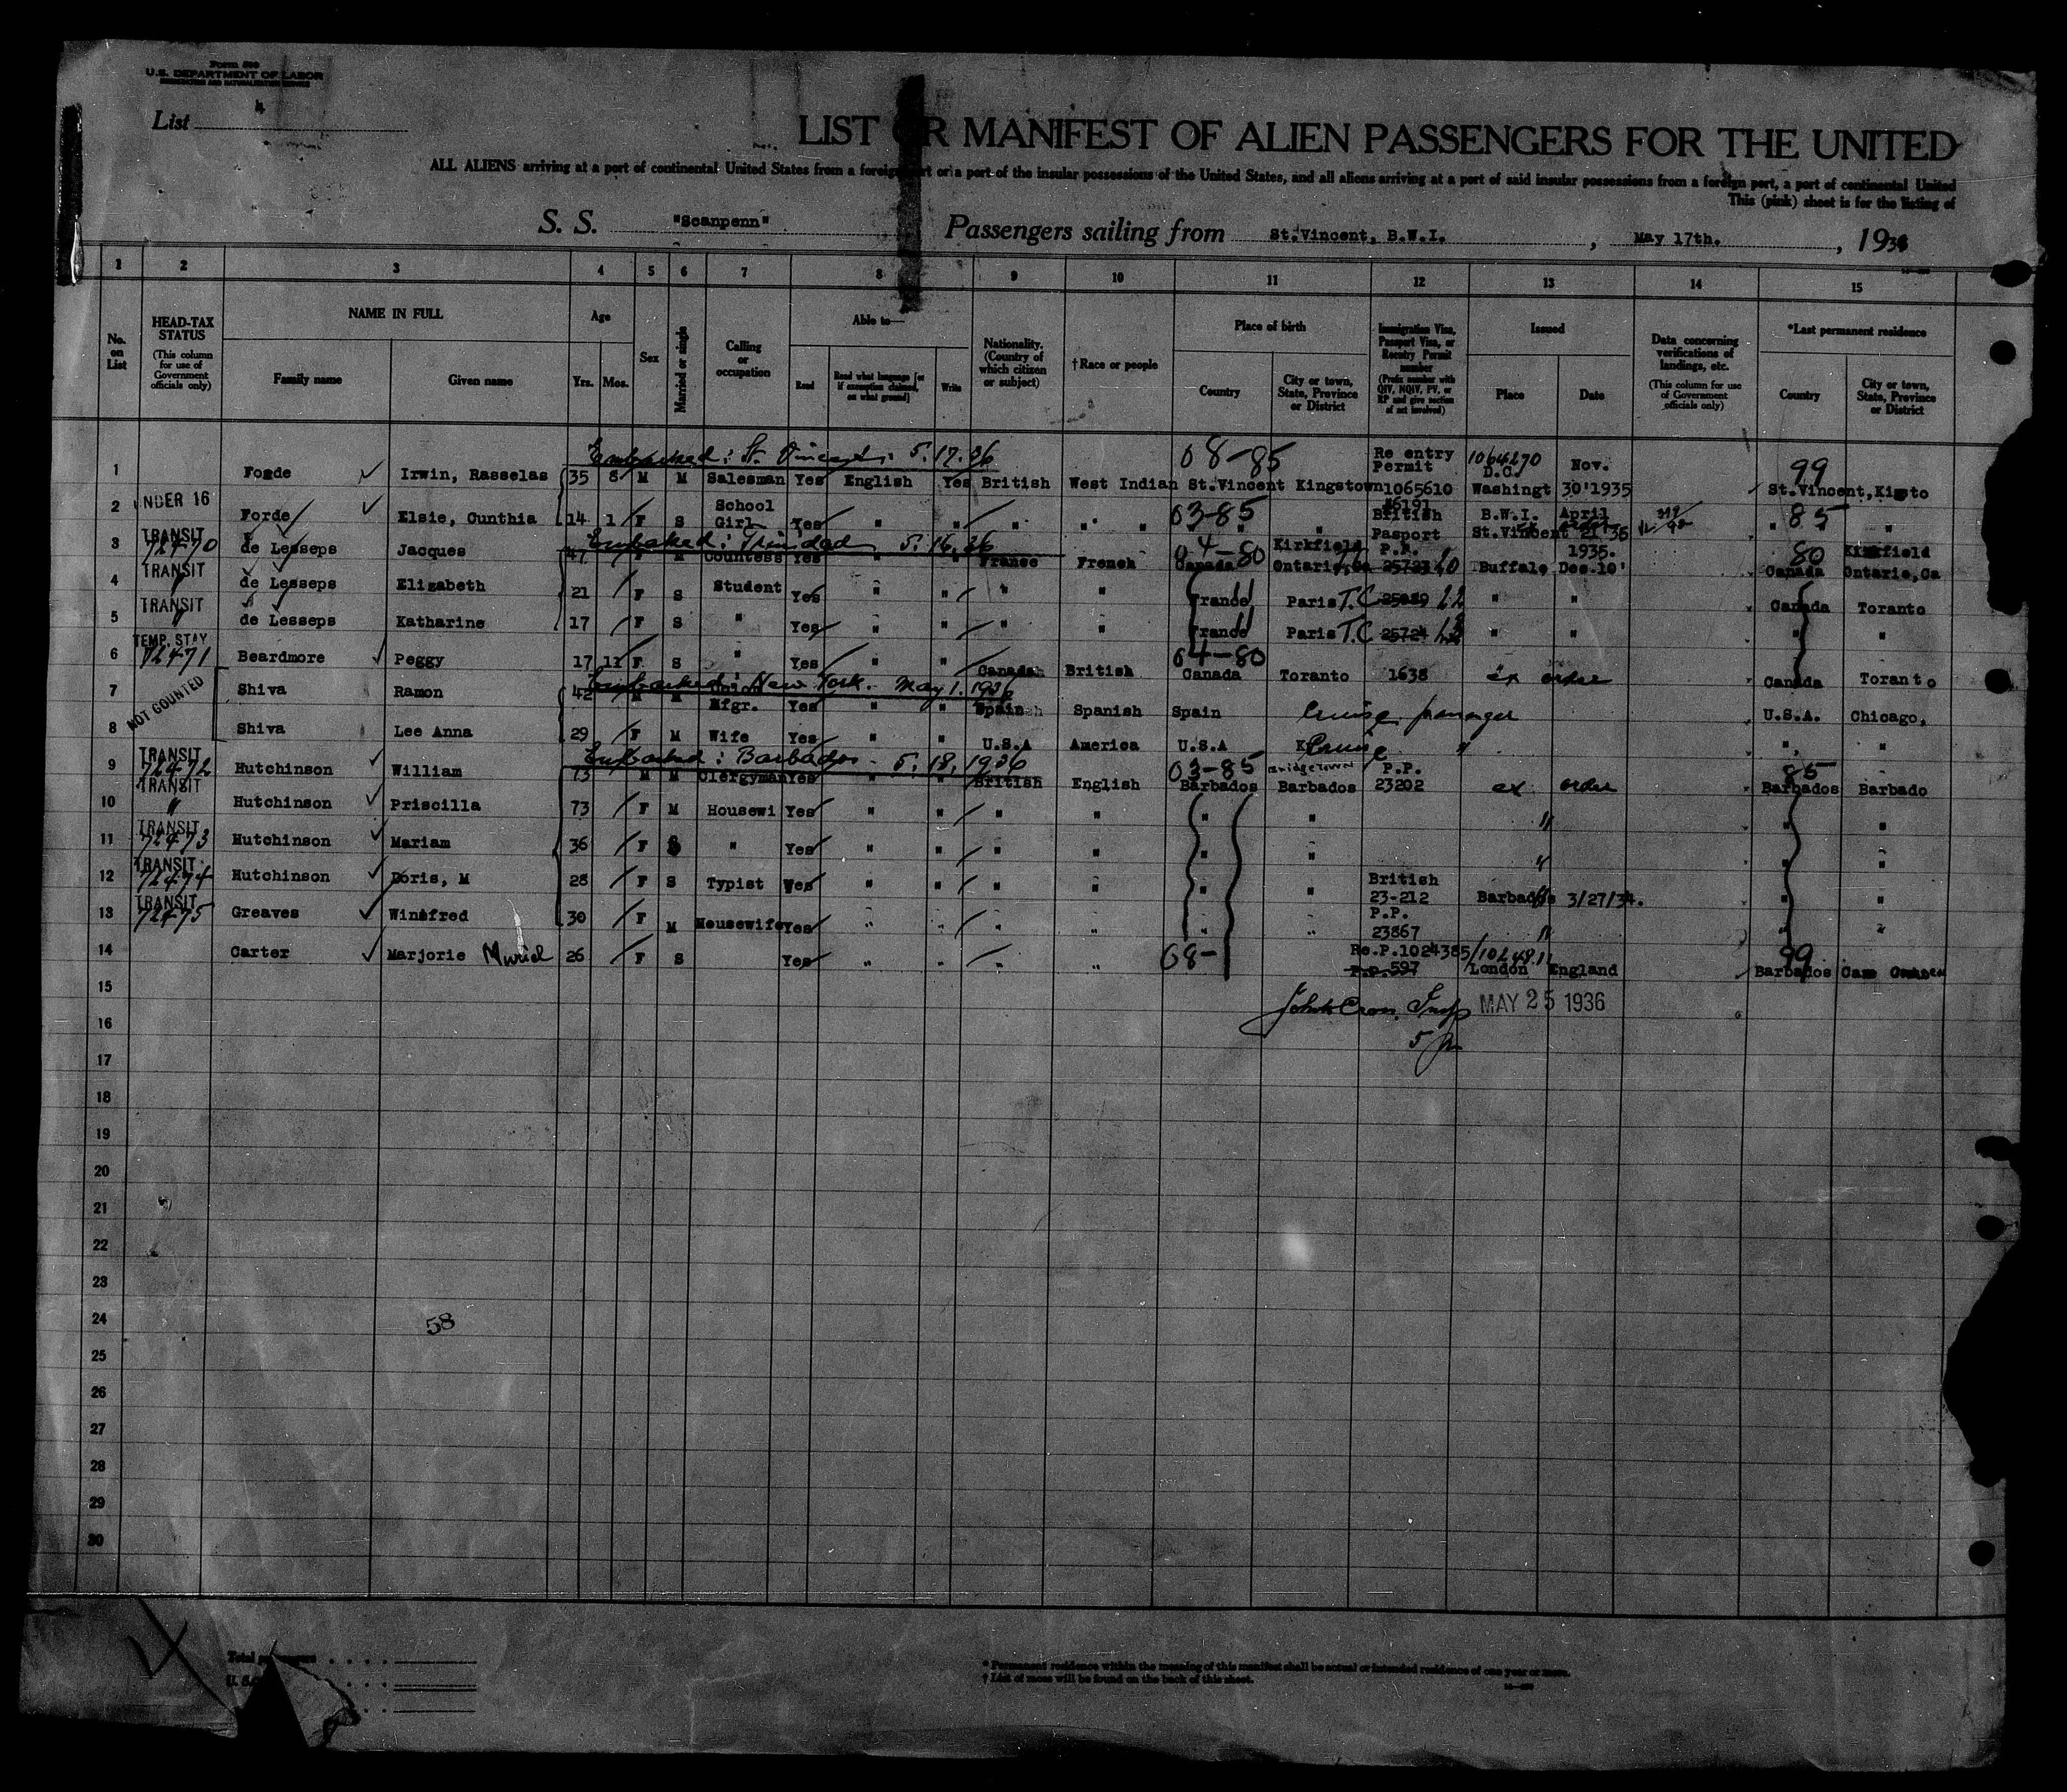 Form 500
U.S. DEPARTMENT OF LABOR
IMMIGRATION AND NATURALIZATION SERVICE
List 4
LIST OR MANIFEST OF ALIEN PASSENGERS FOR THE UNITED
ALL ALIENS arriving at a port of continental United States from a foreign port or a port of the insular possessions of the United States, and all aliens arriving at a port of said insular possessions from a foreign port, a port of continental United
This (pink) sheet is for the listing of
S. S. "Scanpenn" Passengers sailing from St.Vincent, B.W.I. , May 17th. , 1936
1 2 3 4 5 6 7 8 9 10 11 12 13 14 15
No. on List
HEAD-TAX STATUS
(This column for use of Government officials only)
NAME IN FULL
Family name
Given name
Age
Yrs.
Mos.
Sex
Married or single
Calling or occupation
Able to—
Read
Read what language [or if exemption claimed, on what ground]
Write
Nationality. (Country of which citizen or subject)
† Race or people
Place of birth
Country
City or town, State, Province or District
Immigration Visa, Passport Visa, or Reentry Permit number
(Prefix number with QIV, NQIV, PV, or RP and give section of act involved)
Issued
Place
Date
Data concerning verifications of landings, etc.
(This column for use of Government officials only)
*Last permanent residence
Country
City or town, State, Province or District
Embarked: St. Vincent: 5.17.36
08-85
Re entry Permit
1064270
D.C. Nov.
99
1 Forde Irwin, Rasselas 35 8 M M Salesman Yes English Yes British West Indian St.Vincent Kingstown 1065610 Washingt 30'1935 St.Vincent, Kingsto
UNDER 16
2 Forde Elsie, Cunthia 14 1 F S School Girl Yes " " " " " 03-85 " " British Pasport B.W.I. St.Vincent April 21'36 85 " "
Embaked: Trinidad 5.16.36
TRANSIT
72470
3 de Lesseps Jacques 47 M Countess Yes " " France French 04-80 Canada Kirkfield Ontario P.P. 25723 Buffalo Dec.10' 1935. 80 Canada Kirkfield Ontario,Ca
TRANSIT "
4 de Lesseps Elizabeth 21 F S Student Yes " " " " France Paris T.C " " Canada Toranto
TRANSIT "
5 de Lesseps Katharine 17 F S " Yes " " " " France Paris T.C 25724 " " " "
TEMP. STAY
72471
6 Beardmore Peggy 17 11 F S " Yes " " Canada British 04-80 Canada Toranto 1638 ex order Canada Toranto
Embarked: New York. May 1. 1936
NOT COUNTED
7 Shiva Ramon 42 M M Mfgr. Yes " " Spain Spanish Spain Cruise passenger U.S.A. Chicago,
8 Shiva Lee Anna 29 F M Wife Yes " " U.S.A America U.S.A Cruise " " "
Embarked: Barbados - 5.18.1936
TRANSIT
72472
9 Hutchinson William 73 M M Clergyman Yes " " British English 03-85 Barbados Bridgetown Barbados P.P. 23202 ex order 85 Barbados Barbado
TRANSIT "
10 Hutchinson Priscilla 73 F M Housewi Yes " " " " " " " " "
TRANSIT
72473
11 Hutchinson Mariam 36 F S " Yes " " " " " " " " "
TRANSIT
72474
12 Hutchinson Doris, M 28 F S Typist Yes " " " " " " British 23-212 Barbados 3/27/34. " "
TRANSIT
72475
13 Greaves Winifred 30 F M Housewife Yes " " " " " " P.P. 23867 " " "
14 Carter Marjorie Muriel 26 F S Yes " " " " 68- Re.P.1024385 P.P.597 London England 99 Barbados
15
John Cross, Insp MAY 25 1936
16
17
18
19
20
21
22
23
24
58
25
26
27
28
29
30
Total passengers
* Permanent residence within the meaning of this manifest shall be actual or intended residence of one year or more.
† List of races will be found on the back of this sheet.